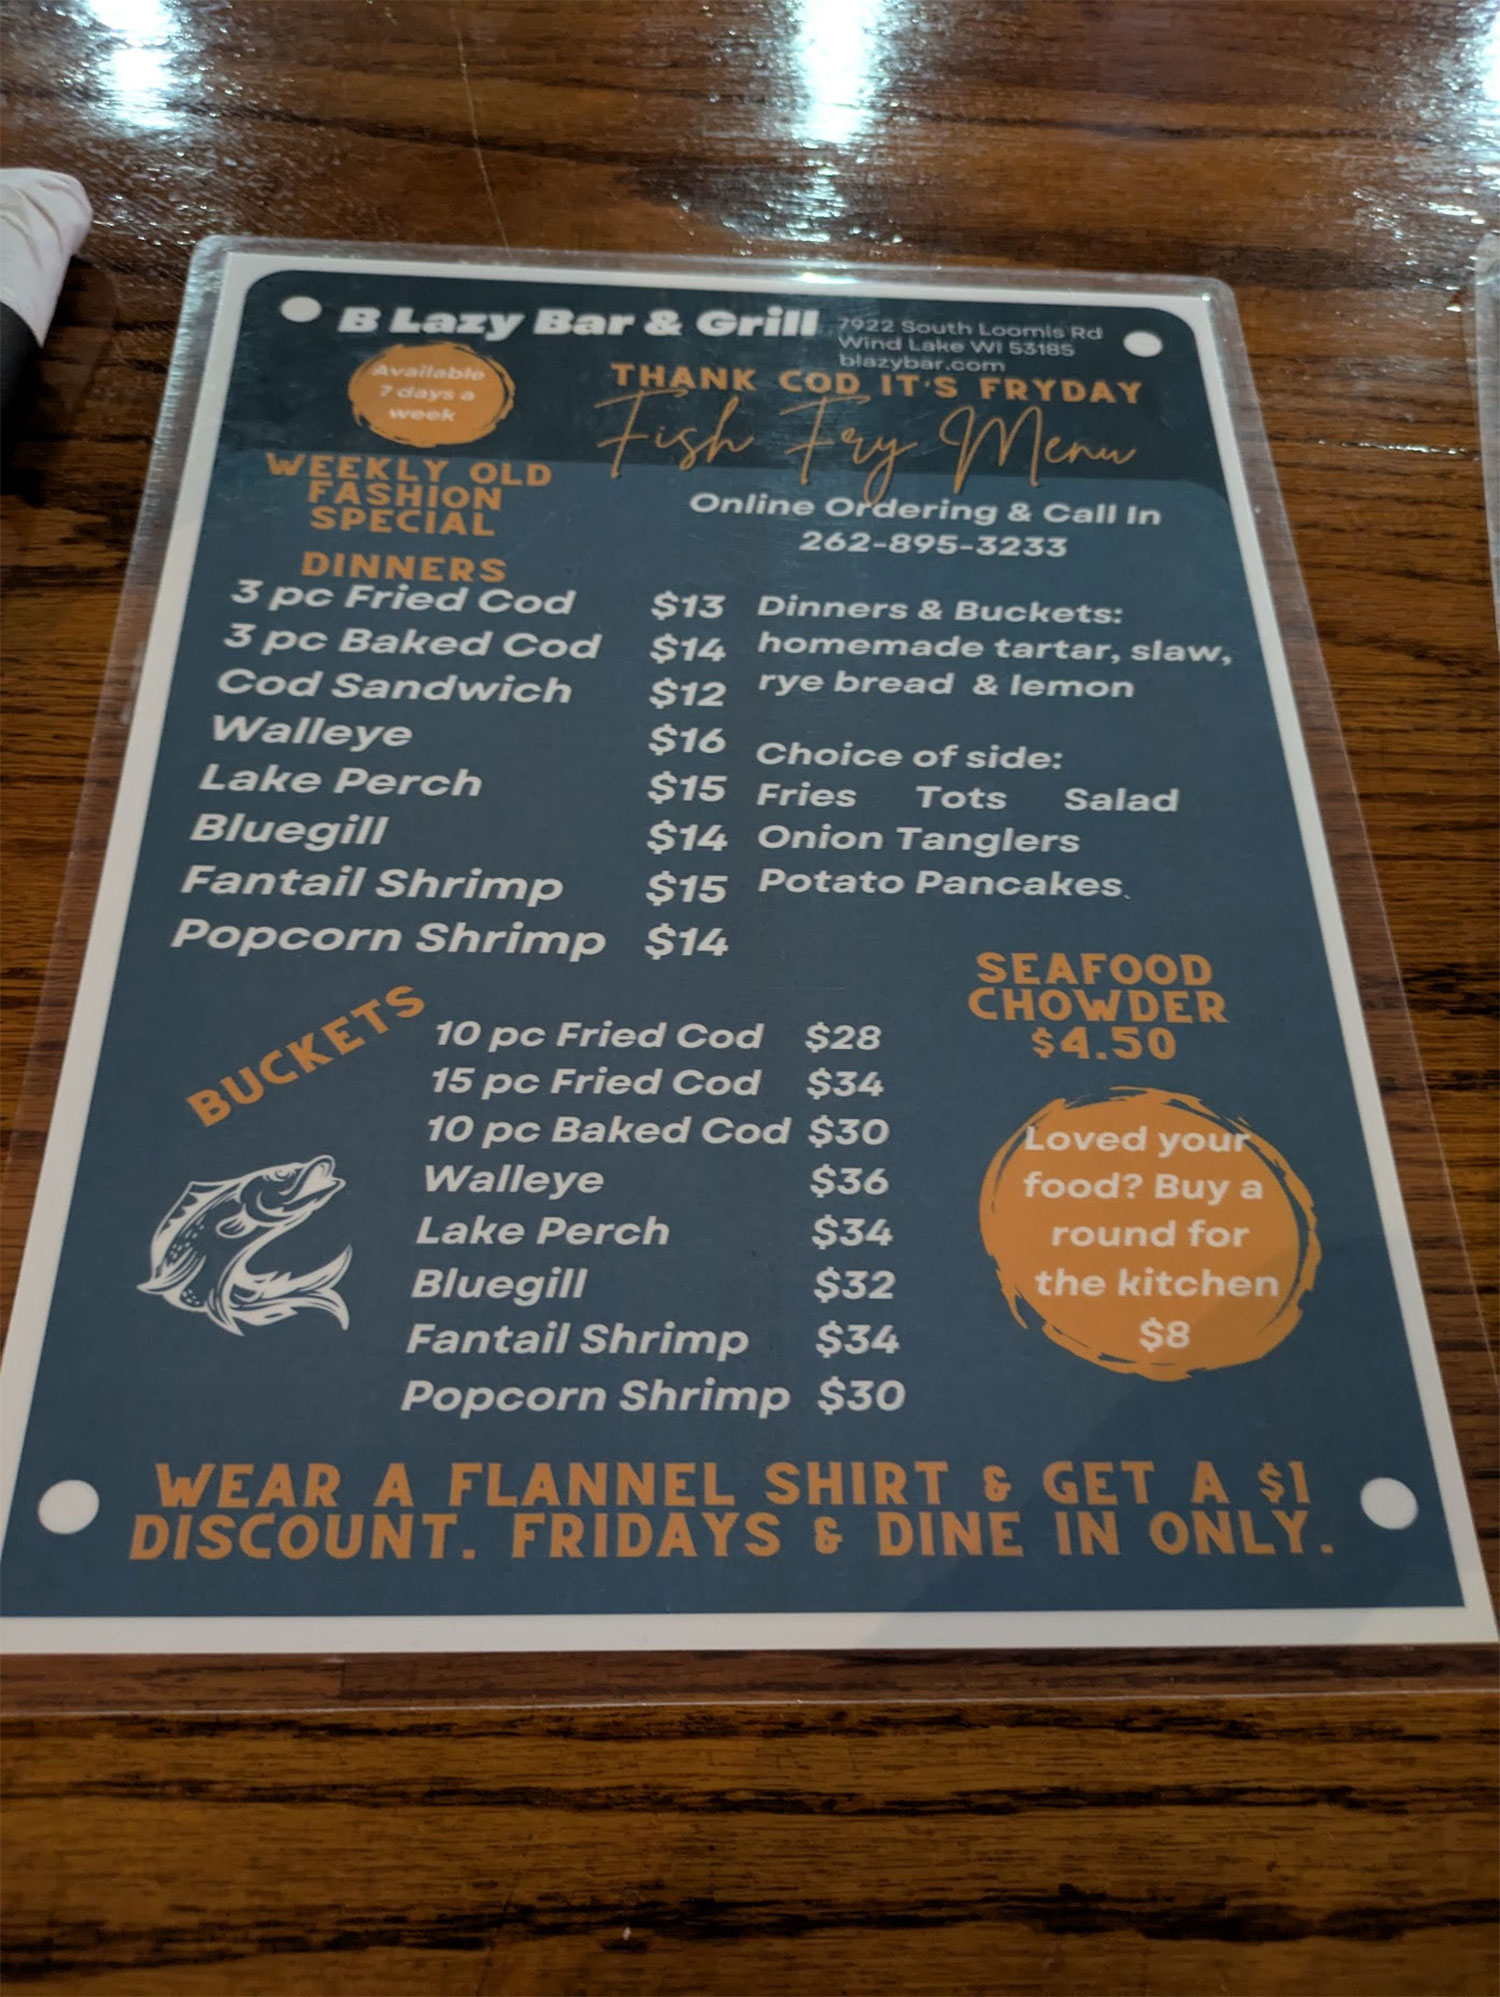 B Lazy Bar & Grill
7922 South Loomis Rd
Wind Lake WI 53185
blazybar.com
Available
7 days a
week
THANK COD IT'S FRYDAY
Fish Fry Menu
WEEKLY OLD
FASHION
SPECIAL
Online Ordering & Call In
262-895-3233
DINNERS
3 pc Fried Cod $13
3 pc Baked Cod $14
Cod Sandwich $12
Walleye $16
Lake Perch $15
Bluegill $14
Fantail Shrimp $15
Popcorn Shrimp $14
Dinners & Buckets:
homemade tartar, slaw,
rye bread & lemon
Choice of side:
Fries Tots Salad
Onion Tanglers
Potato Pancakes.
SEAFOOD
CHOWDER
$4.50
BUCKETS
10 pc Fried Cod $28
15 pc Fried Cod $34
10 pc Baked Cod $30
Walleye $36
Lake Perch $34
Bluegill $32
Fantail Shrimp $34
Popcorn Shrimp $30
Loved your
food? Buy a
round for
the kitchen
$8
WEAR A FLANNEL SHIRT & GET A $1
DISCOUNT. FRIDAYS & DINE IN ONLY.